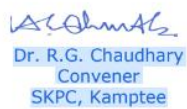 Dr. R.G. Chaudhary
Convener
SKPC, Kamptee